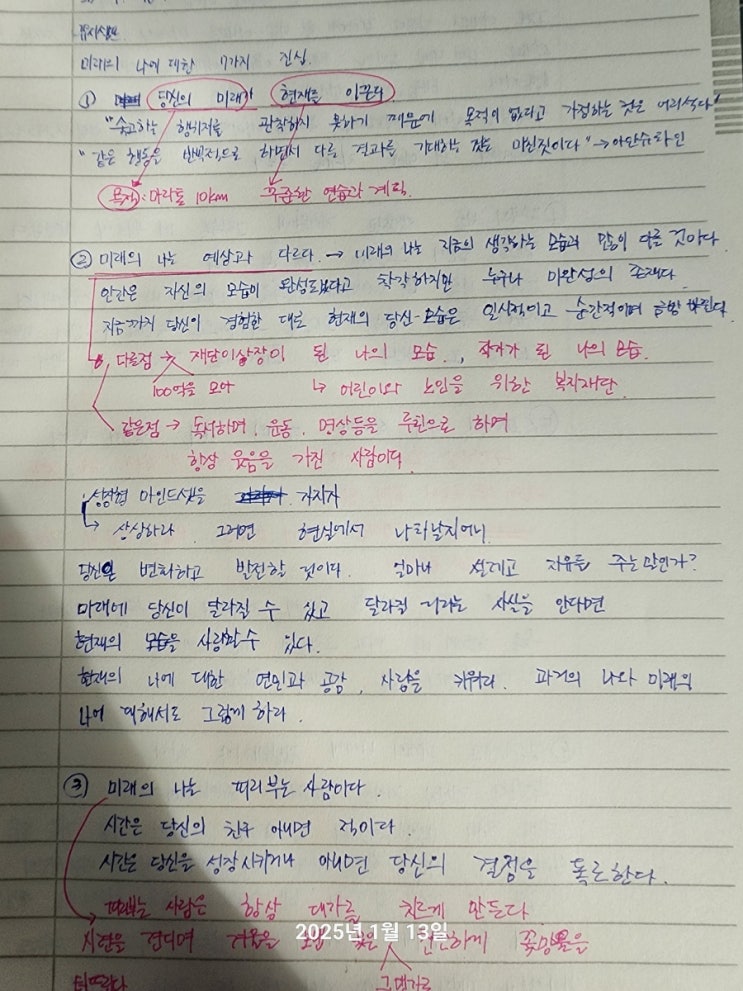 미래의 나에 대한 7가지 진실.
① 당신의 미래가 현재를 이끈다.
"숙고하는 행위자를 관찰하지 못하기 때문에 목적이 없다고 가정하는 것은 어리석다"
"같은 행동을 반복적으로 하면서 다른 결과를 기대하는 것은 미친짓이다" → 아인슈타인
목적: 마라톤 10km 꾸준한 연습과 계획.
② 미래의 나는 예상과 다르다. → 미래의 나는 지금의 생각하는 모습과 많이 다를 것이다.
인간은 자신의 모습이 완성되었다고 착각하지만 누구나 미완성의 존재다
지금까지 당신이 경험한 대로 현재의 당신-모습은 일시적이고 순간적이며 금방 바뀐다.
다른점 → 재단이사장이 된 나의 모습, 작가가 된 나의 모습.
100억을 모아 ↳ 어린이와 노인을 위한 복지재단.
같은점 → 독서하며, 운동, 명상등을 루틴으로 하며
항상 웃음을 가진 사람이다.
성장형 마인드셋을 가지자
→ 상상하라. 그러면 현실에서 나타날지어니.
당신은 변화하고 발전할 것이다. 얼마나 설레고 자유를 주는 말인가?
미래에 당신이 달라질 수 있고 달라질 거라는 사실을 안다면
현재의 모습을 사랑할수 있다.
현재의 나에 대한 연민과 공감, 사랑을 키워라. 과거의 나와 미래의
나에 대해서도 그렇게 하라.
③ 미래의 나는 피리부는 사람이다.
시간은 당신의 친구 아니면 적이다.
시간은 당신을 성장시키거나 아니면 당신의 결점을 폭로한다.
피리부는 사람은 항상 대가를 치르게 만든다.
시련을 견디며 겨울을 꽃은 단단하게 꽃망울을
터뜨린다
그 댓가로
2025년 1월 13일